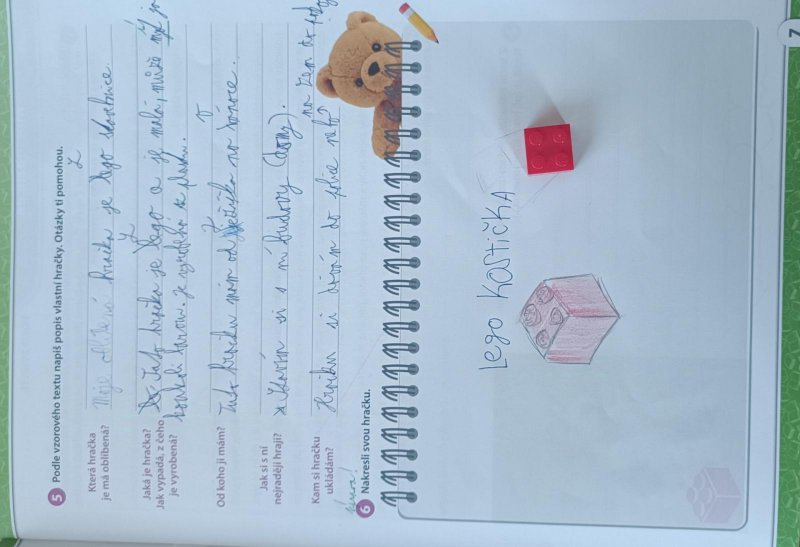 7
5 Podle vzorového textu napiš popis vlastní hračky. Otázky ti pomohou.
Která hračka
je má oblíbená?
Moje oblíbená hračka je lego stavebnice.
L
Jaká je hračka?
Jak vypadá, z čeho
je vyrobená?
Tato hračka je lego a je malá, může mýt
L
barvu. Je vyrobena z plastu.
Od koho ji mám?
Tuto hračku mám od Ježíška na Vánoce.
V
Jak si s ní
nejraději hraji?
Stavím si s ní budovy (domy).
Kam si hračku
ukládám?
Hračku si dávám do police nebo
na zem do
6 Nakresli svou hračku.
Lego KOSTIČKA